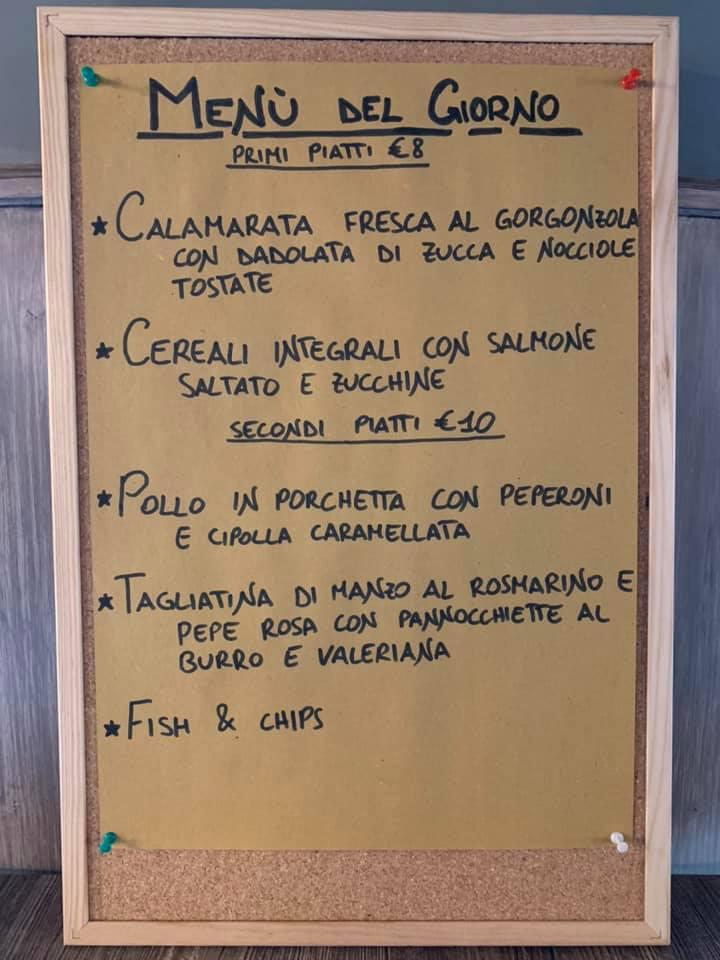 MENÙ DEL GIORNO
PRIMI PIATTI €8
★ CALAMARATA FRESCA AL GORGONZOLA
CON DADOLATA DI ZUCCA E NOCCIOLE
TOSTATE
★ CEREALI INTEGRALI CON SALMONE
SALTATO E ZUCCHINE
SECONDI PIATTI €10
★ POLLO IN PORCHETTA CON PEPERONI
E CIPOLLA CARAMELLATA
★ TAGLIATINA DI MANZO AL ROSMARINO E
PEPE ROSA CON PANNOCCHIETTE AL
BURRO E VALERIANA
★ FISH & CHIPS